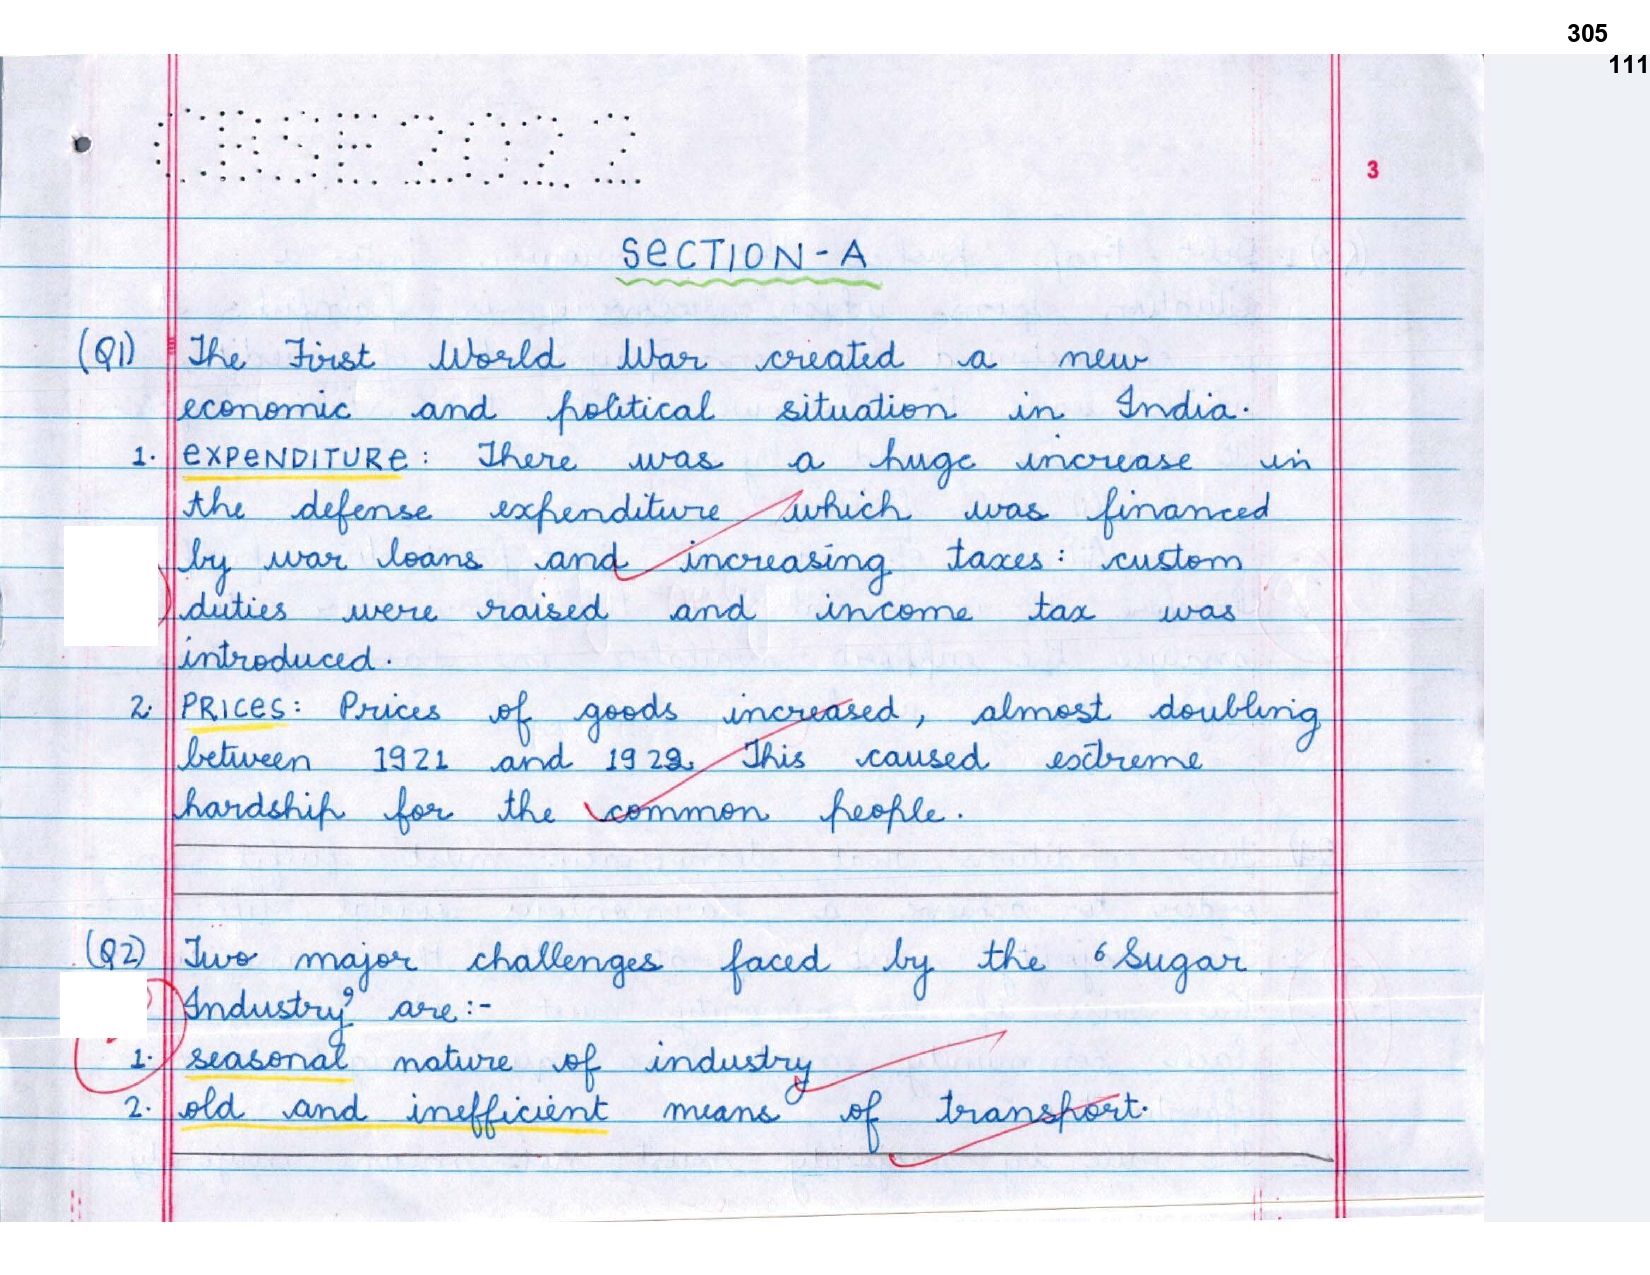 305
111
CBSE 2022
3
SECTION-A
(Q1) The First World War created a new
economic and political situation in India.
1. EXPENDITURE: There was a huge increase in
the defense expenditure which was financed
by war loans and increasing taxes: custom
duties were raised and income tax was
introduced.
2. PRICES: Prices of goods increased, almost doubling
between 1921 and 1922. This caused extreme
hardship for the common people.
(Q2) Two major challenges faced by the 'Sugar
Industry' are:-
1. seasonal nature of industry
2. old and inefficient means of transport.